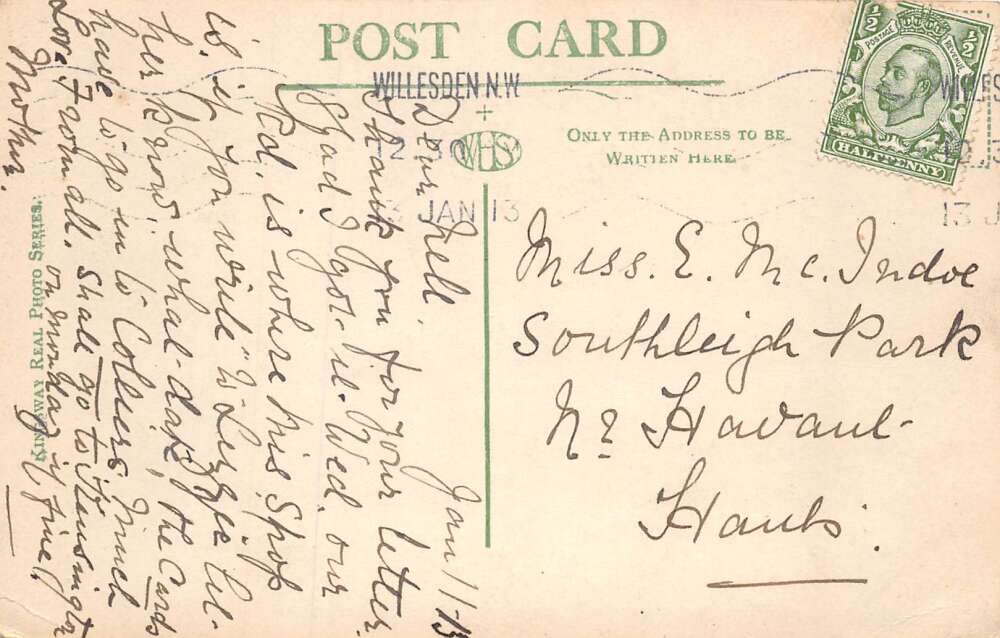 POST CARD
WILLESDEN. N.W
JAN 13
WHS
ONLY THE ADDRESS TO BE
WRITTEN HERE
½ ½
POSTAGE REVENUE
HALFPENNY
WILLES
13 J
Miss. E. Mc. Indoe
Southleigh Park
Nr Havant
Hants.
Jan 11-13
Dear Nell.
Thank you for your letter.
Glad I got it. Wed. our
Rd. is where Mrs.
is if you write to Lezzie let
her know. what date, the Cards
have to go in to Colliers. Much
Love From all. Shall go to Kensington
on Monday if fine.
Mother.
KINGSWAY REAL PHOTO SERIES.